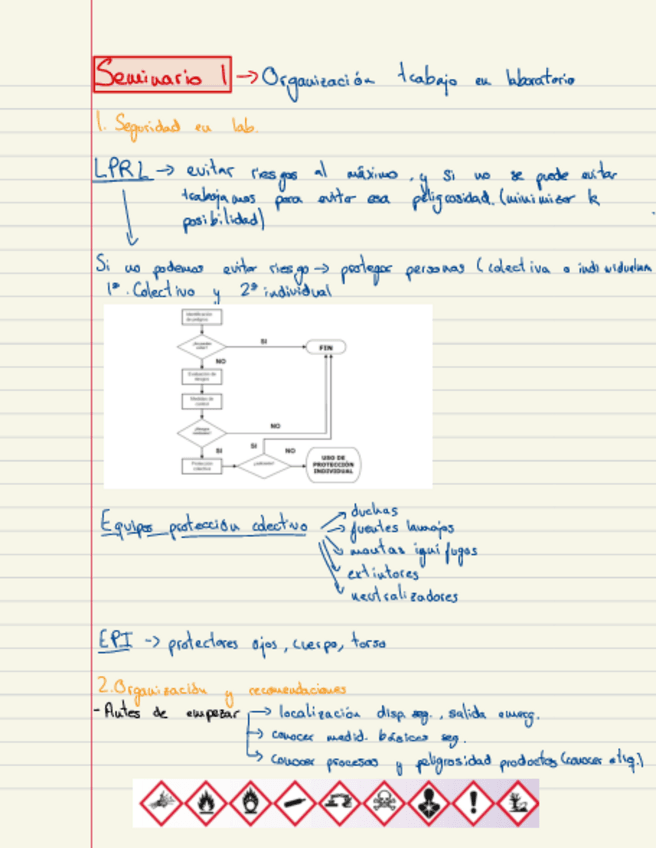 Seminario 1 → Organización trabajo en laboratorio
1. Seguridad en lab.
LPRL → evitar riesgos al máximo, y si no se puede evitar
trabajamos para evitar esa peligrosidad. (minimizar la
posibilidad)
Si no podemos evitar riesgo → proteger personas (colectiva o individual
1º. Colectivo y 2º individual
Identificación de peligros
SI
FIN
NO
Evaluación de riesgos
Medidas de control
NO
SI
SI
NO
Protección colectiva
USO DE
PROTECCIÓN
INDIVIDUAL
Equipos protección colectivo
→ duchas
→ fuentes lavaojos
→ mantas ignifugas
→ extintores
→ neutralizadores
EPI → protectores ojos, cuerpo, torso
2. Organización y recomendaciones
- Antes de empezar → localización disp. seg., salida emerg.
→ conocer medid. básicas seg.
→ conocer procesos y peligrosidad productos (conocer etiq.)